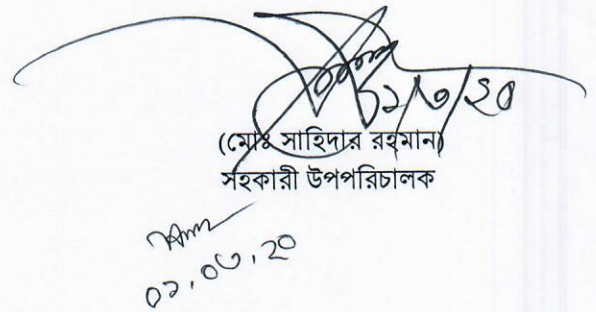 ০১/৩/২০
(মোঃ সাহিদার রহমান)
সহকারী উপপরিচালক
০১.০৩.২০